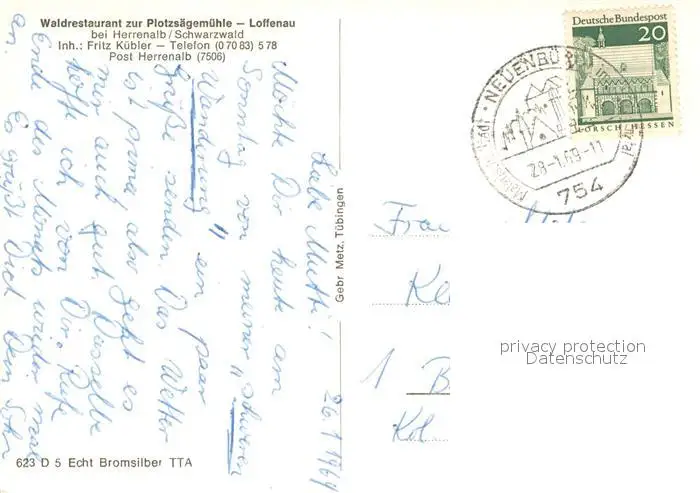 Waldrestaurant zur Plotzsägemühle – Loffenau
bei Herrenalb/Schwarzwald
Inh.: Fritz Kübler – Telefon (0 70 83) 5 78
Post Herrenalb (7506)
26.1.1969
Liebe Mutti!
Möchte Dir heute am
Sonntag von meiner "schweren
Wanderung" ein paar
Grüße senden. Das Wetter
ist prima, also geht es
mir auch gut. Dasselbe
hoffe ich von Dir. Rufe
Ende des Monats wieder mal
an. Es grüßt Dich Dein Sohn
623 D 5 Echt Bromsilber TTA
Gebr. Metz, Tübingen
Deutsche Bundespost
20
LORSCH/HESSEN
NEUENBÜ
28-1.69-11
754
Frau
Ke
1 B
Kol
privacy protection
Datenschutz